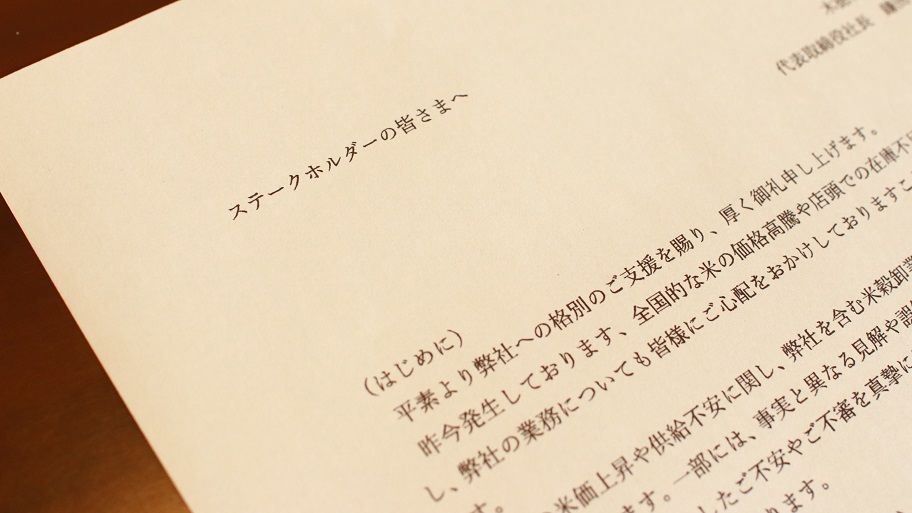 代表取締役社長
ステークホルダーの皆さまへ
(はじめに)
平素より弊社への格別のご支援を賜り、厚く御礼申し上げます。
昨今発生しております、全国的な米の価格高騰や店頭での在庫不
し、弊社の業務についても皆様にご心配をおかけしておりますこ
米価上昇や供給不安に関し、弊社を含む米穀卸業
す。一部には、事実と異なる見解や誤
したご不安やご不審を真摯に
ります。